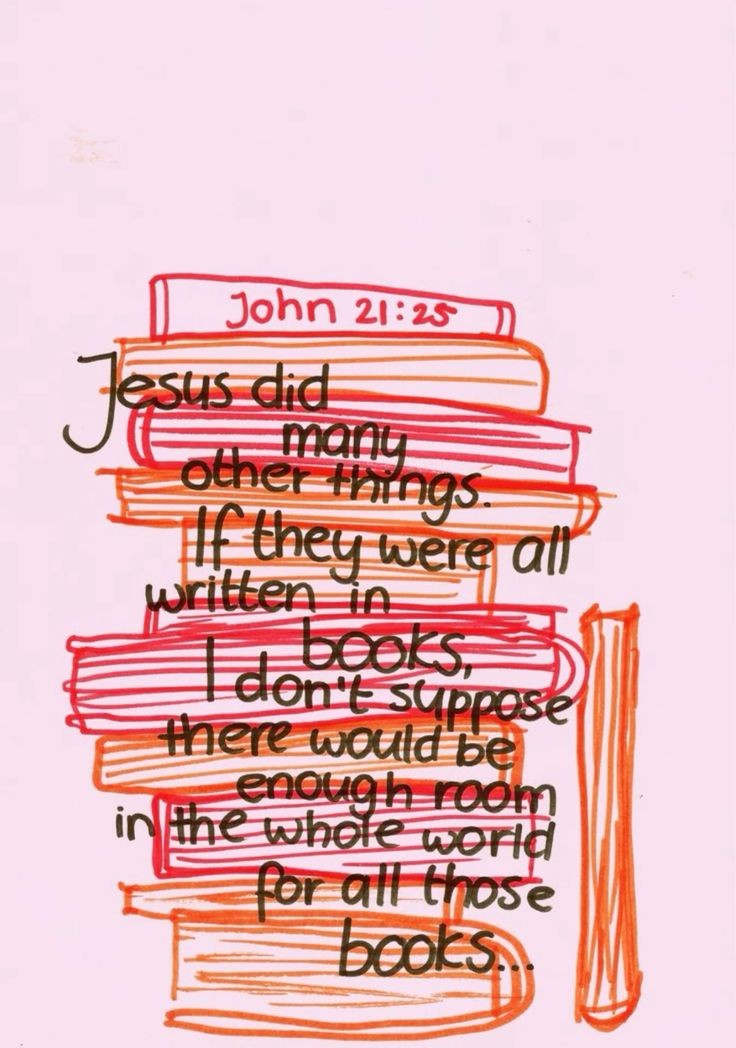 John 21:25
Jesus did
many
other things.
If they were all
written in
books,
I don't suppose
there would be
enough room
in the whole world
for all those
books...